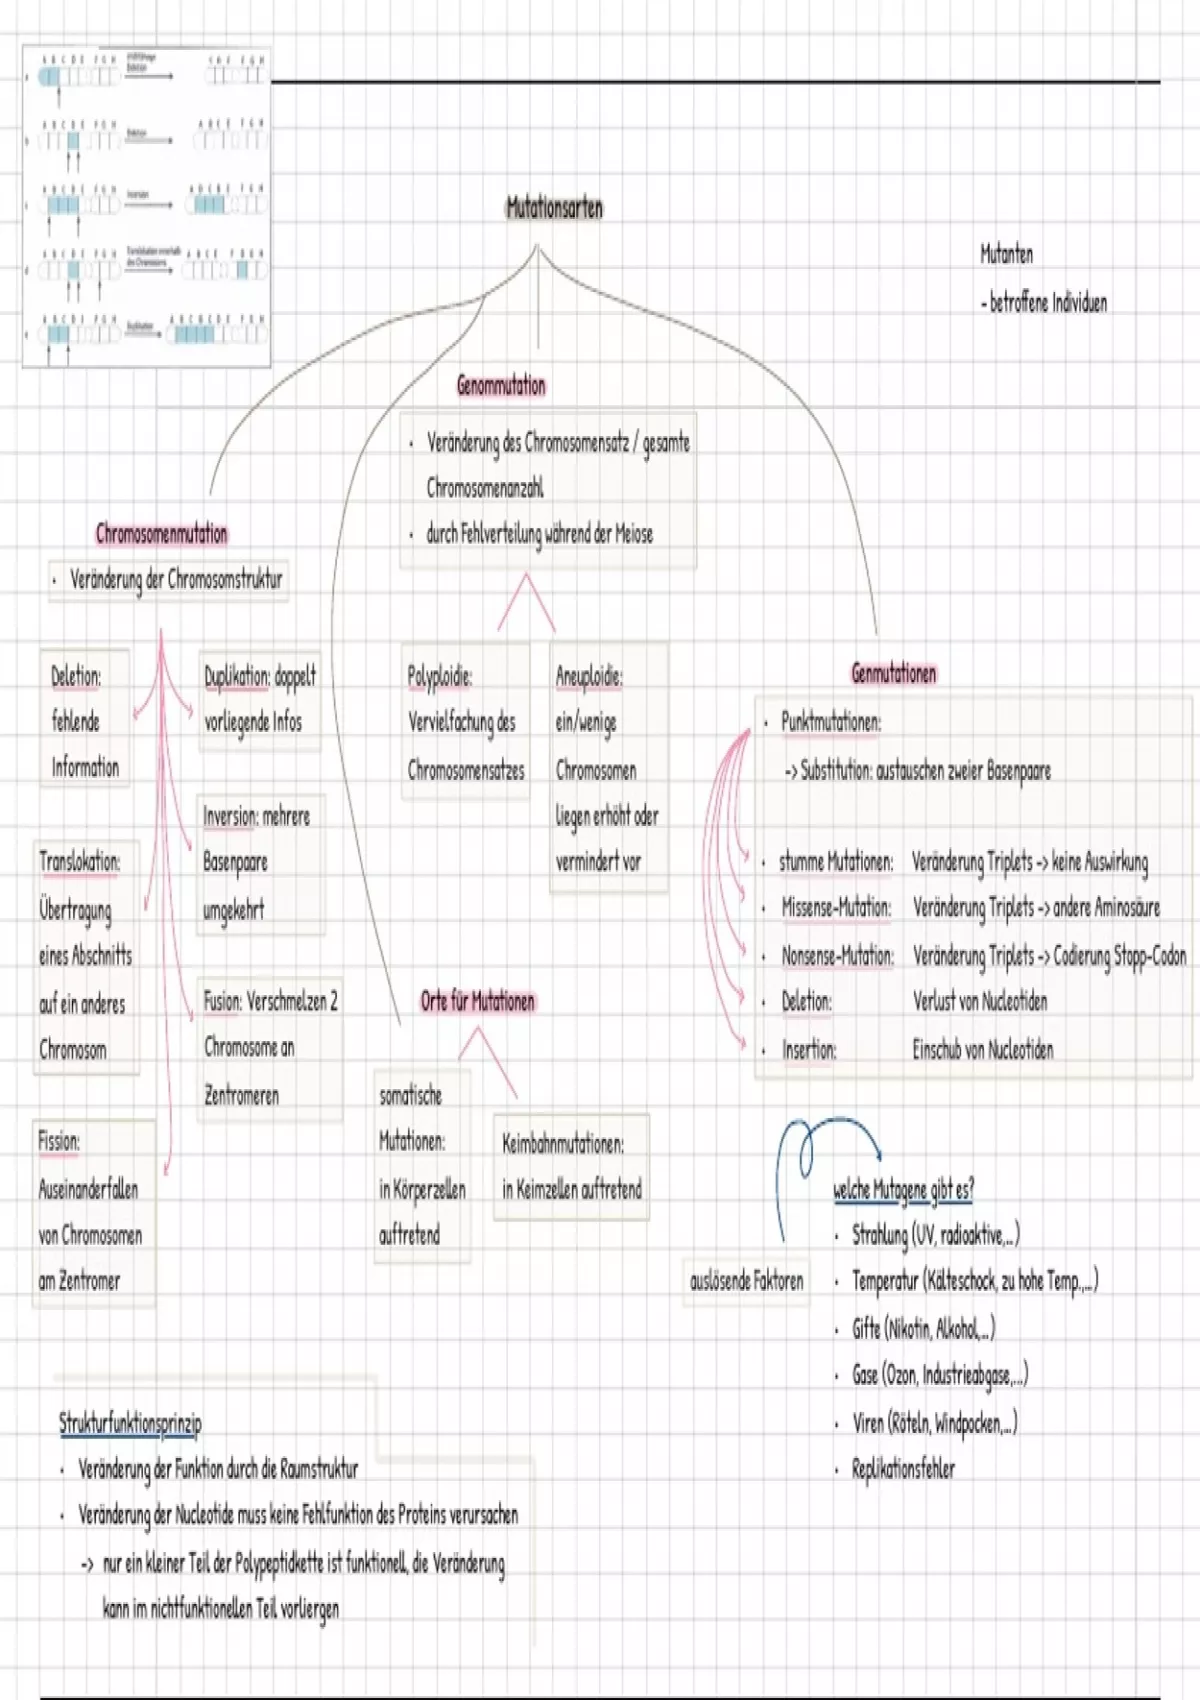 A B C D E F G H
Deletion
C D E F G H
A B C D E F G H
Deletion
A B C E F G H
A B C D E F G H
Inversion
A D C B E F G H
A B C D E F G H
Translokation innerhalb
des Chromosoms
A B C E F D G H
A B C D E F G H
Duplikation
A B C B C D E F G H
Mutationsarten
Mutanten
- betroffene Individuen
Genommutation
• Veränderung des Chromosomensatz / gesamte
Chromosomenanzahl
• durch Fehlverteilung während der Meiose
Chromosomenmutation
• Veränderung der Chromosomstruktur
Deletion:
fehlende
Information
Duplikation: doppelt
vorliegende Infos
Inversion: mehrere
Basenpaare
umgekehrt
Translokation:
Übertragung
eines Abschnitts
auf ein anderes
Chromosom
Fusion: Verschmelzen 2
Chromosome an
Zentromeren
Fission:
Auseinanderfallen
von Chromosomen
am Zentromer
Polyploidie:
Vervielfachung des
Chromosomensatzes
Aneuploidie:
ein/wenige
Chromosomen
liegen erhöht oder
vermindert vor
Orte für Mutationen
somatische
Mutationen:
in Körperzellen
auftretend
Keimbahnmutationen:
in Keimzellen auftretend
Genmutationen
• Punktmutationen:
-> Substitution: austauschen zweier Basenpaare
• stumme Mutationen: Veränderung Triplets -> keine Auswirkung
• Missense-Mutation: Veränderung Triplets -> andere Aminosäure
• Nonsense-Mutation: Veränderung Triplets -> Codierung Stopp-Codon
• Deletion: Verlust von Nucleotiden
• Insertion: Einschub von Nucleotiden
auslösende Faktoren
welche Mutagene gibt es?
• Strahlung (UV, radioaktive,...)
• Temperatur (Kälteschock, zu hohe Temp.,...)
• Gifte (Nikotin, Alkohol,...)
• Gase (Ozon, Industrieabgase,...)
• Viren (Röteln, Windpocken,...)
• Replikationsfehler
Strukturfunktionsprinzip
• Veränderung der Funktion durch die Raumstruktur
• Veränderung der Nucleotide muss keine Fehlfunktion des Proteins verursachen
-> nur ein kleiner Teil der Polypeptidkette ist funktionell, die Veränderung
kann im nichtfunktionellen Teil vorliergen